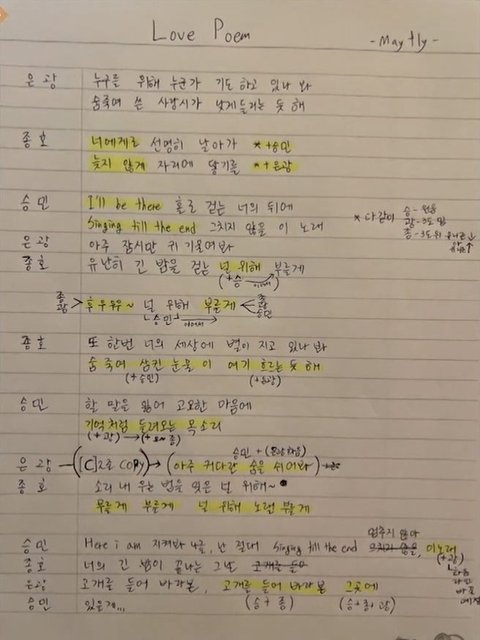 Love Poem - Mayfly -
은광 누구를 위해 누군가 기도하고 있나봐
숨죽여 쓴 사랑시가 낮게 들리는 듯 해
종호 너에게로 선명히 날아가 * +승민
늦지 않게 자리에 닿기를 * +은광
승민 I'll be there 홀로 걷는 너의 뒤에
Singing till the end 그치지 않을 이 노래
* 다같이 승 - 원음
광 - 3도 밑
은광 아주 잠시만 귀 기울여봐
종호 유난히 긴 밤을 걷는 널 위해 부를게
(+승 이어서)
종 광 > 후우우우~ 널 위해 부를게 < 종 승민
승민+ 이어서
종호 또 한번 너의 세상에 별이 지고 있나봐
숨죽여 삼킨 눈물이 여기 흐르는 듯 해
(+승민) (+은광)
승민 할 말을 잃어 고요한 마음에
기억처럼 들려오는 목소리
(+광) →
승민 +
은광 아주 커다란 숨을 쉬어봐
종호 소리 내 우는 법을 잊은 널 위해~
부를게 부를게 널 위해 노래 부를게
멈추지 않아
승민 Here i am 지켜봐 나를, 난 절대 Singing till the end 그치지 않을, 이 노래
(+광)
종호 너의 긴 밤이 끝나는 그날 고개를 들어
은광 고개를 들어 바라본, 고개를 들어 바라본 그곳에
승민 있을게... (승+종) (승+종+광)